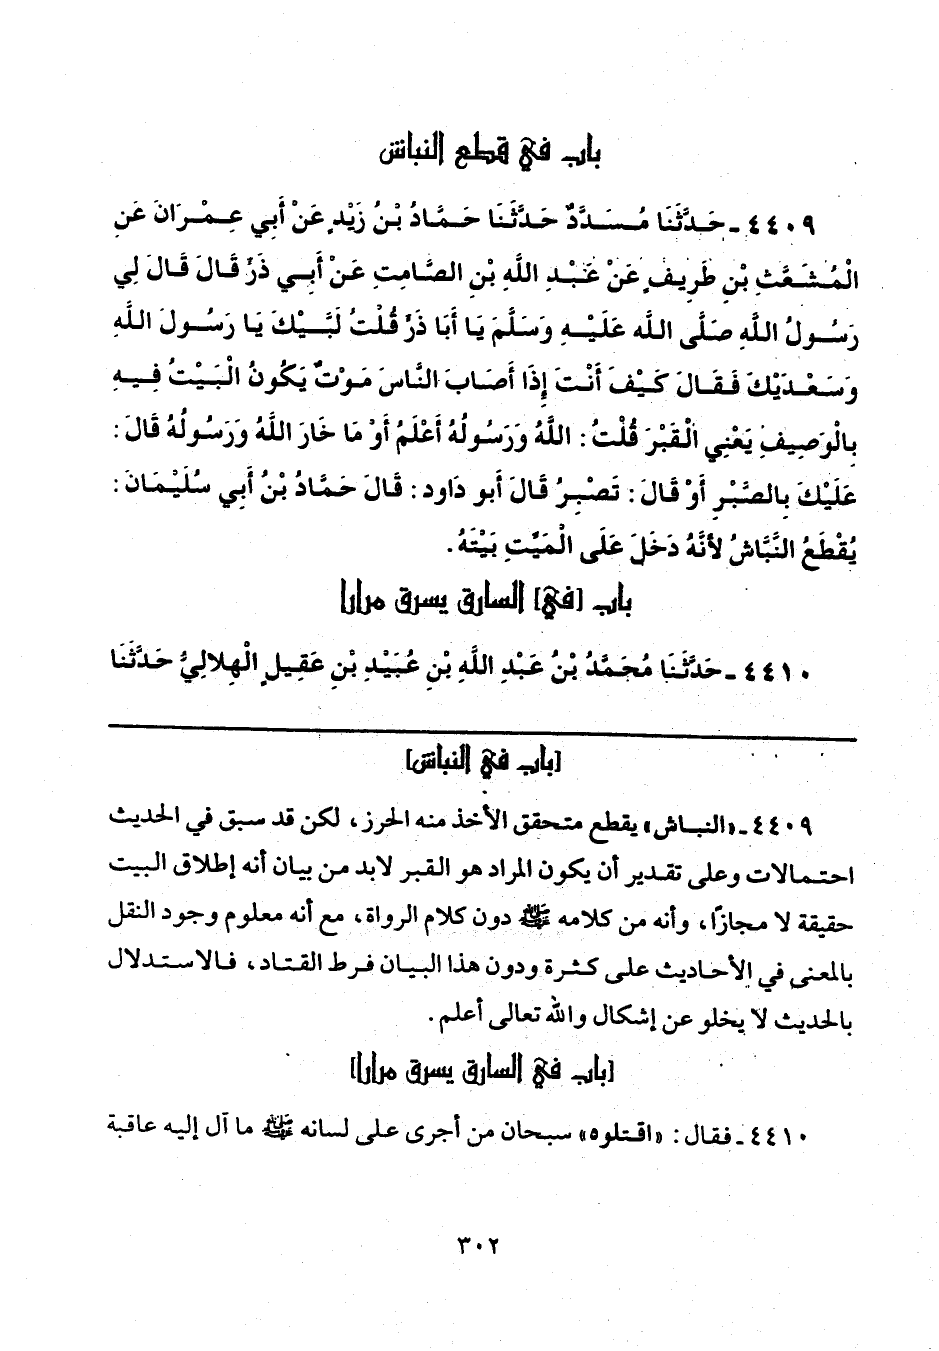 باب في قطع النباش
٤٤٠٩ ـ حَدَّثَنَا مُسَدَّدٌ حَدَّثَنَا حَمَّادُ بْنُ زَيْدٍ عَنْ أَبِي عِمْرَانَ عَنِ
الْمُشَعَّثِ بْنِ طَرِيفٍ عَنْ عَبْدِ اللَّهِ بْنِ الصَّامِتِ عَنْ أَبِي ذَرٍّ قَالَ قَالَ لِي
رَسُولُ اللَّهِ صَلَّى اللَّه عَلَيْهِ وَسَلَّمَ يَا أَبَا ذَرٍّ قُلْتُ لَبَّيْكَ يَا رَسُولَ اللَّهِ
وَسَعْدَيْكَ فَقَالَ كَيْفَ أَنْتَ إِذَا أَصَابَ النَّاسَ مَوْتٌ يَكُونُ الْبَيْتُ فِيهِ
بِالْوَصِيفِ يَعْنِي الْقَبْرَ قُلْتُ: اللَّهُ وَرَسُولُهُ أَعْلَمُ أَوْ مَا خَارَ اللَّهُ وَرَسُولُهُ قَالَ:
عَلَيْكَ بِالصَّبْرِ أَوْ قَالَ: تَصْبِرُ قَالَ أَبو دَاود: قَالَ حَمَّادُ بْنُ أَبِي سُلَيْمَانَ:
يُقْطَعُ النَّبَّاشُ لأَنَّهُ دَخَلَ عَلَى الْمَيِّتِ بَيْتَهُ.
باب [في] السارق يسرق مرارا
٤٤١٠ ـ حَدَّثَنَا مُحَمَّدُ بْنُ عَبْدِ اللَّهِ بْنِ عُبَيْدِ بْنِ عَقِيلٍ الْهِلالِيُّ حَدَّثَنَا
[باب في النباش]
٤٤٠٩ ـ «النباش» يقطع متحقق الأخذ منه الحرز، لكن قد سبق في الحديث
احتمالات وعلى تقدير أن يكون المراد هو القبر لابد من بيان أنه إطلاق البيت
حقيقة لا مجازًا، وأنه من كلامه ﷺ دون كلام الرواة، مع أنه معلوم وجود النقل
بالمعنى في الأحاديث على كثرة ودون هذا البيان فرط القتاد، فالاستدلال
بالحديث لا يخلو عن إشكال والله تعالى أعلم.
[باب في السارق يسرق مرارا]
٤٤١٠ ـ فقال: «اقتلوه» سبحان من أجرى على لسانه ﷺ ما آل إليه عاقبة
٣٠٢